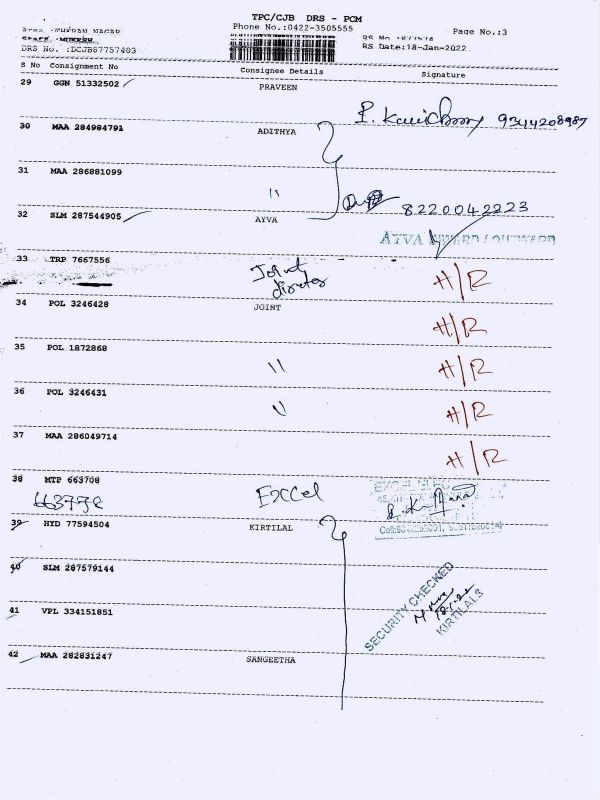 TPC/CJB DRS - PCM
Phone No.:0422-3505555
Page No.:3
DRS No. :DCJB87757403
RS Date:18-Jan-2022
S No Consignment No Consignee Details Signature
29 GGN 51332502 PRAVEEN
9344208987
30 MAA 284984791 ADITHYA
31 MAA 286881099
"
8220042223
32 SLM 287544905 AYVA
AYVA INWARD / OUTWARD
33 TRP 7667556 Joint H/R
34 POL 3246428 JOINT
H/R
35 POL 1872868 " H/R
36 POL 3246431 " H/R
37 MAA 286049714
H/R
38 MTP 663708
663778 Excel
39 HYD 77594504 KIRTILAL
40 SLM 287579144
SECURITY CHECKED
KIRTILALS
41 VPL 334151851
42 MAA 282831247 SANGEETHA